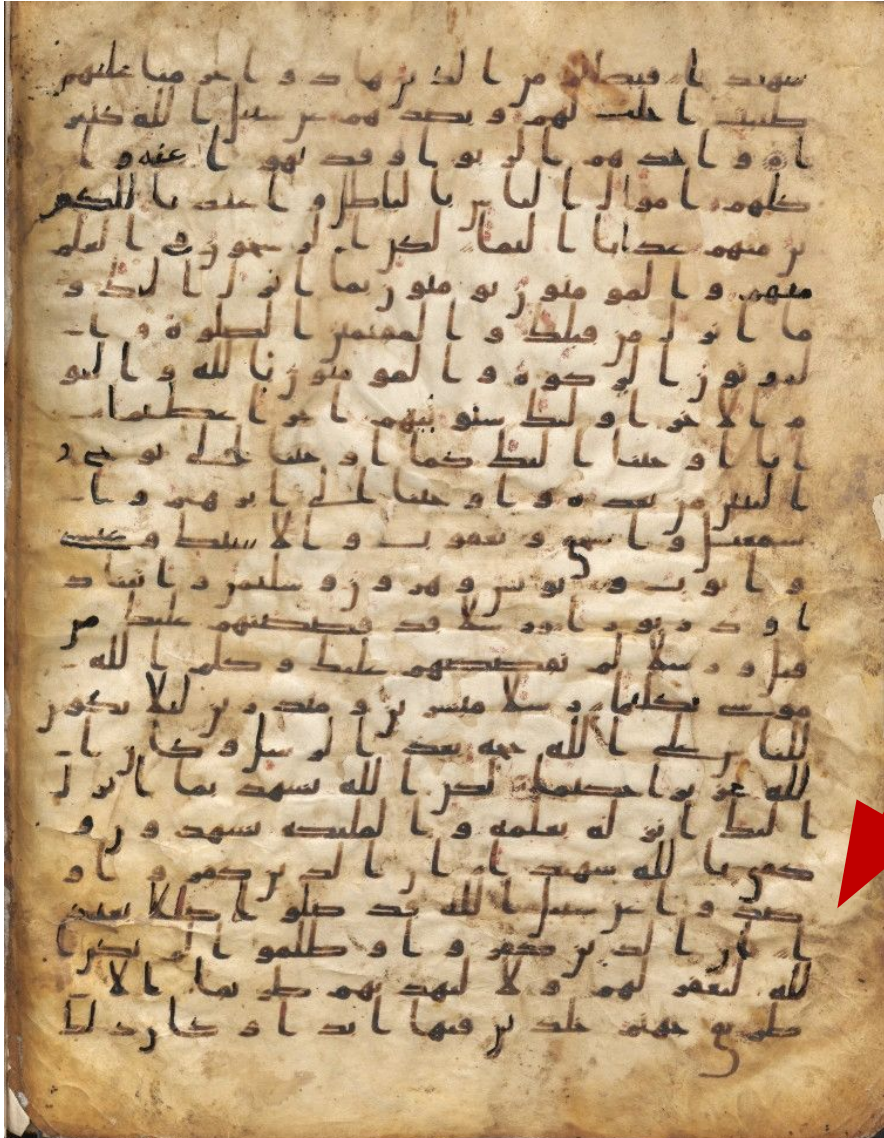 شهيدا فبظلم من الذين هادوا حرمنا عليهم
طيبت احلت لهم وبصدهم عن سبيل الله كثير
ا واخذهم الربوا وقد نهوا عنه وا
كلهم اموال الناس بالباطل واعتدنا للكفر
ين منهم عذابا اليما لكن الرسخون في العلم
منهم والمومنون يومنون بما انزل اليك و
ما انزل من قبلك والمقيمين الصلوة وا
لموتون الزكوة والمومنون بالله واليو
م الاخر اولئك سنوتيهم اجرا عظيما
انا اوحينا اليك كما اوحينا الى نوح و
النبين من بعده واوحينا الى ابرهيم وا
سمعيل واسحق ويعقوب والاسبط وعيسى
وايوب ويونس وهرون وسليمن واتينا د
اود زبورا ورسلا قد قصصنهم عليك من
قبل ورسلا لم نقصصهم عليك وكلم الله
موسى تكليما رسلا مبشرين ومنذرين ليلا يكون
للناس على الله حجه بعد الرسل وكان ا
لله عزيزا حكيما لكن الله يشهد بما انزل
اليك انزله بعلمه والمليكه يشهدون و
كفى بالله شهيدا ان الذين كفروا و
صدوا عن سبيل الله قد ضلوا ضللا بعيد
ا ان الذين كفروا وظلموا لم يكن ا
لله ليغفر لهم ولا ليهديهم طريقا الا
طريق جهنم خلدين فيها ابدا وكان ذلك